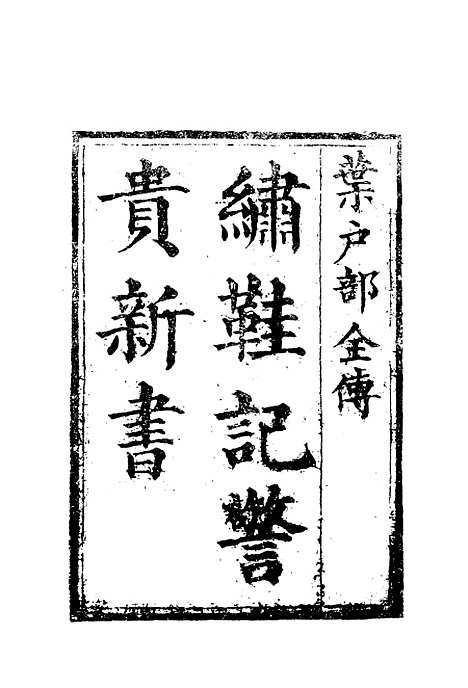 葉户部全傳
繡鞋記警
貴新書